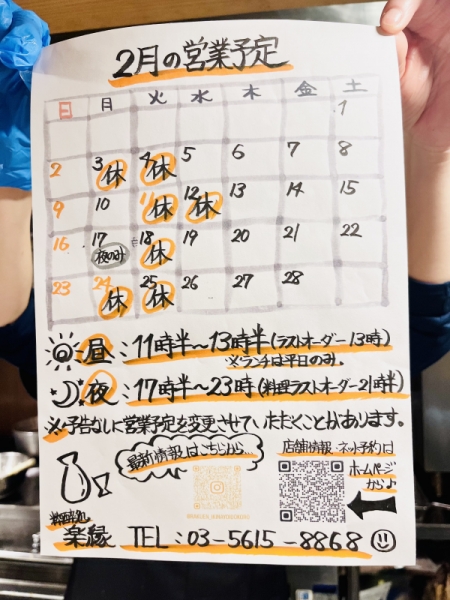 2月の営業予定
日 月 火 水 木 金 土
1
2 3休 4休 5 6 7 8
9 10 11休 12休 13 14 15
16 17夜のみ 18休 19 20 21 22
23 24休 25休 26 27 28
昼:11時半〜13時半(ラストオーダー13時)
※ランチは平日のみ。
夜:17時半〜23時(料理ラストオーダー21時半)
※予告なしに営業予定を変更させていただくことがあります。
最新情報はこちらから…
店舗情報・ネット予約は
ホームページ
から♪
楽縁 TEL:03-5615-8868